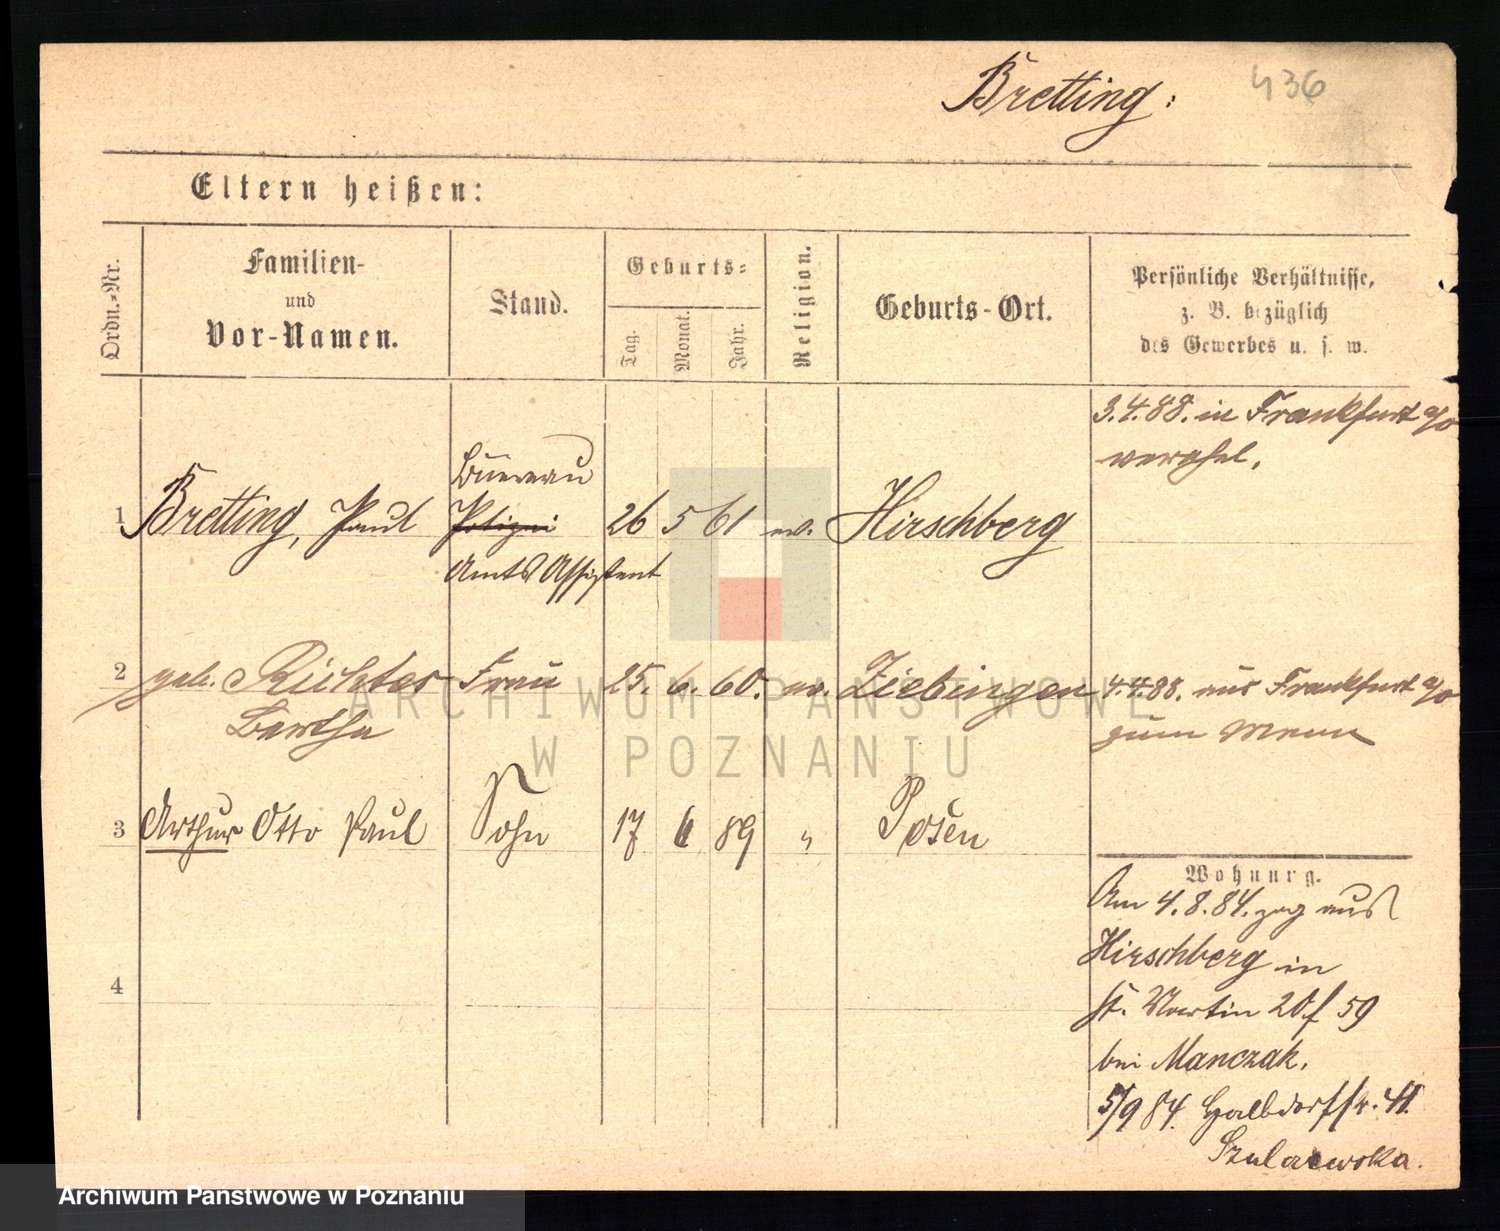 Bretting:
436
Eltern heißen:
Ordn.-Nr.
Familien-
und
Vor-Namen.
Stand.
Geburts-
Tag.
Monat.
Jahr.
Religion.
Geburts-Ort.
Persönliche Verhältnisse,
z. B. bezüglich
des Gewerbes u. s. w.
3.4.88. in Frankfurt a/O
verehel.
Büereau
1 Bretting, Paul Polizei 26 5 61 ev. Hirschberg
Amts Assistent
2 geb. Richter Frau 25. 6. 60. ev. Ziebingen 4.4.88. aus Frankfurt a/O
Bertha zum Mann
3 Arthur Otto Paul Sohn 17 6 89 " Posen
Wohnung.
Am 4.8.84. zog aus
Hirschberg in
St. Martin 20f 59
bei Manczak.
4
5/9 84. Halbdorfstr. 41.
Szulczewska.
ARCHIWUM PAŃSTWOWE
W POZNANIU
Archiwum Państwowe w Poznaniu